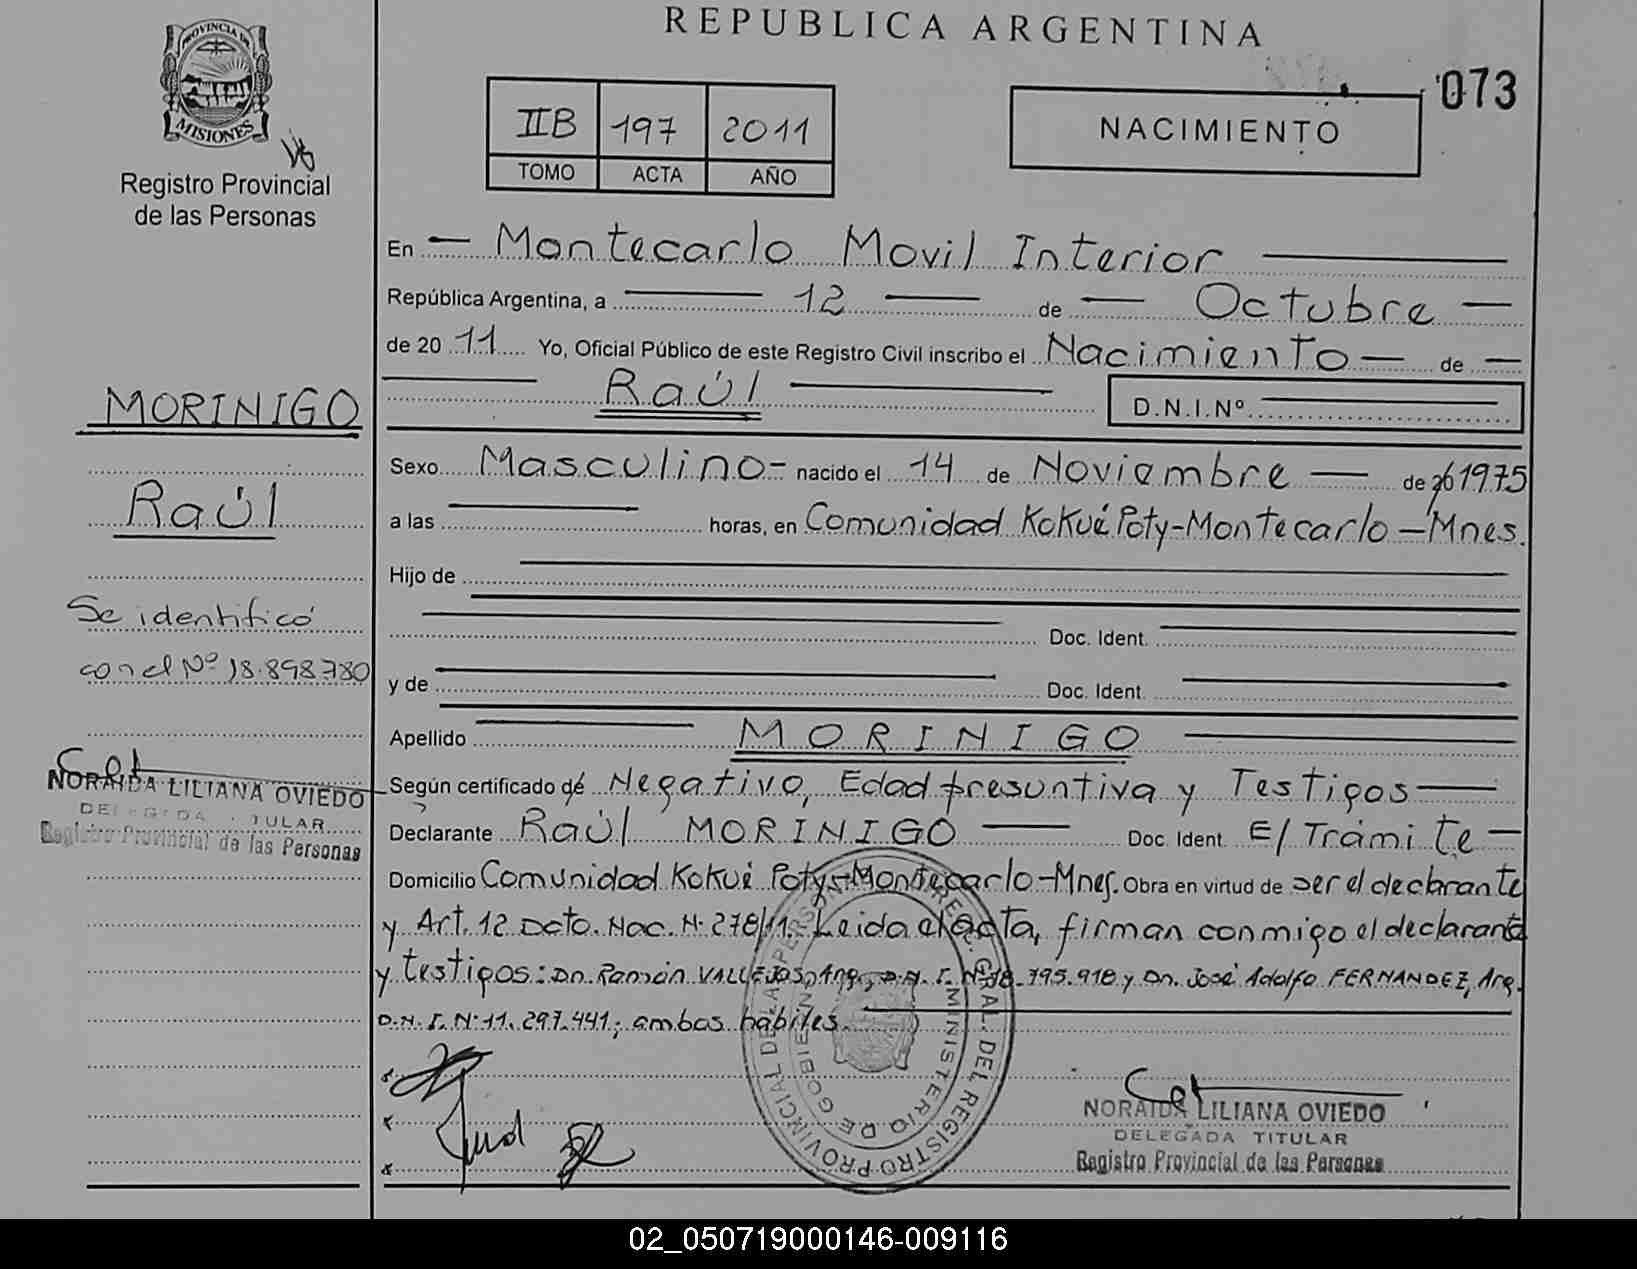 REPUBLICA ARGENTINA
PROVINCIA DE
MISIONES
Registro Provincial
de las Personas
073
IIB 197 2011
TOMO ACTA AÑO
NACIMIENTO
En — Montecarlo Movil Interior —
República Argentina, a — 12 — de — Octubre —
de 20 11 Yo, Oficial Público de este Registro Civil inscribo el Nacimiento — de —
— Raúl — D.N.I.Nº —
MORINIGO
Raúl
Se identificó
con el Nº 18.898.780
NORAIDA LILIANA OVIEDO
DELEGADA TITULAR
Registro Provincial de las Personas
Sexo Masculino - nacido el 14 de Noviembre — de 1975
a las — horas, en Comunidad Kokué Poty - Montecarlo - Mnes.
Hijo de —
— Doc. Ident. —
y de — Doc. Ident. —
Apellido — MORINIGO —
Según certificado de Negativo, Edad presuntiva y Testigos —
Declarante Raúl MORINIGO — Doc. Ident. E/Trámite —
Domicilio Comunidad Kokué Poty - Montecarlo - Mnes. Obra en virtud de ser el declarante
y Art. 12 Dcto. Nac. N. 278/11. Leida el acta, firman conmigo el declarante
y testigos: Dn. Ramón VALLEJOS, Arg., D.N.I. Nº 18.795.918 y Dn. José Adolfo FERNANDEZ, Arg.
D.N.I. Nº 11.297.441; ambos hábiles. —
REGISTRO PROVINCIAL DE LAS PERSONAS
GRAL. DEL
MINISTERIO DE GOBIERNO
NORAIDA LILIANA OVIEDO
DELEGADA TITULAR
Registro Provincial de las Personas
02_050719000146-009116